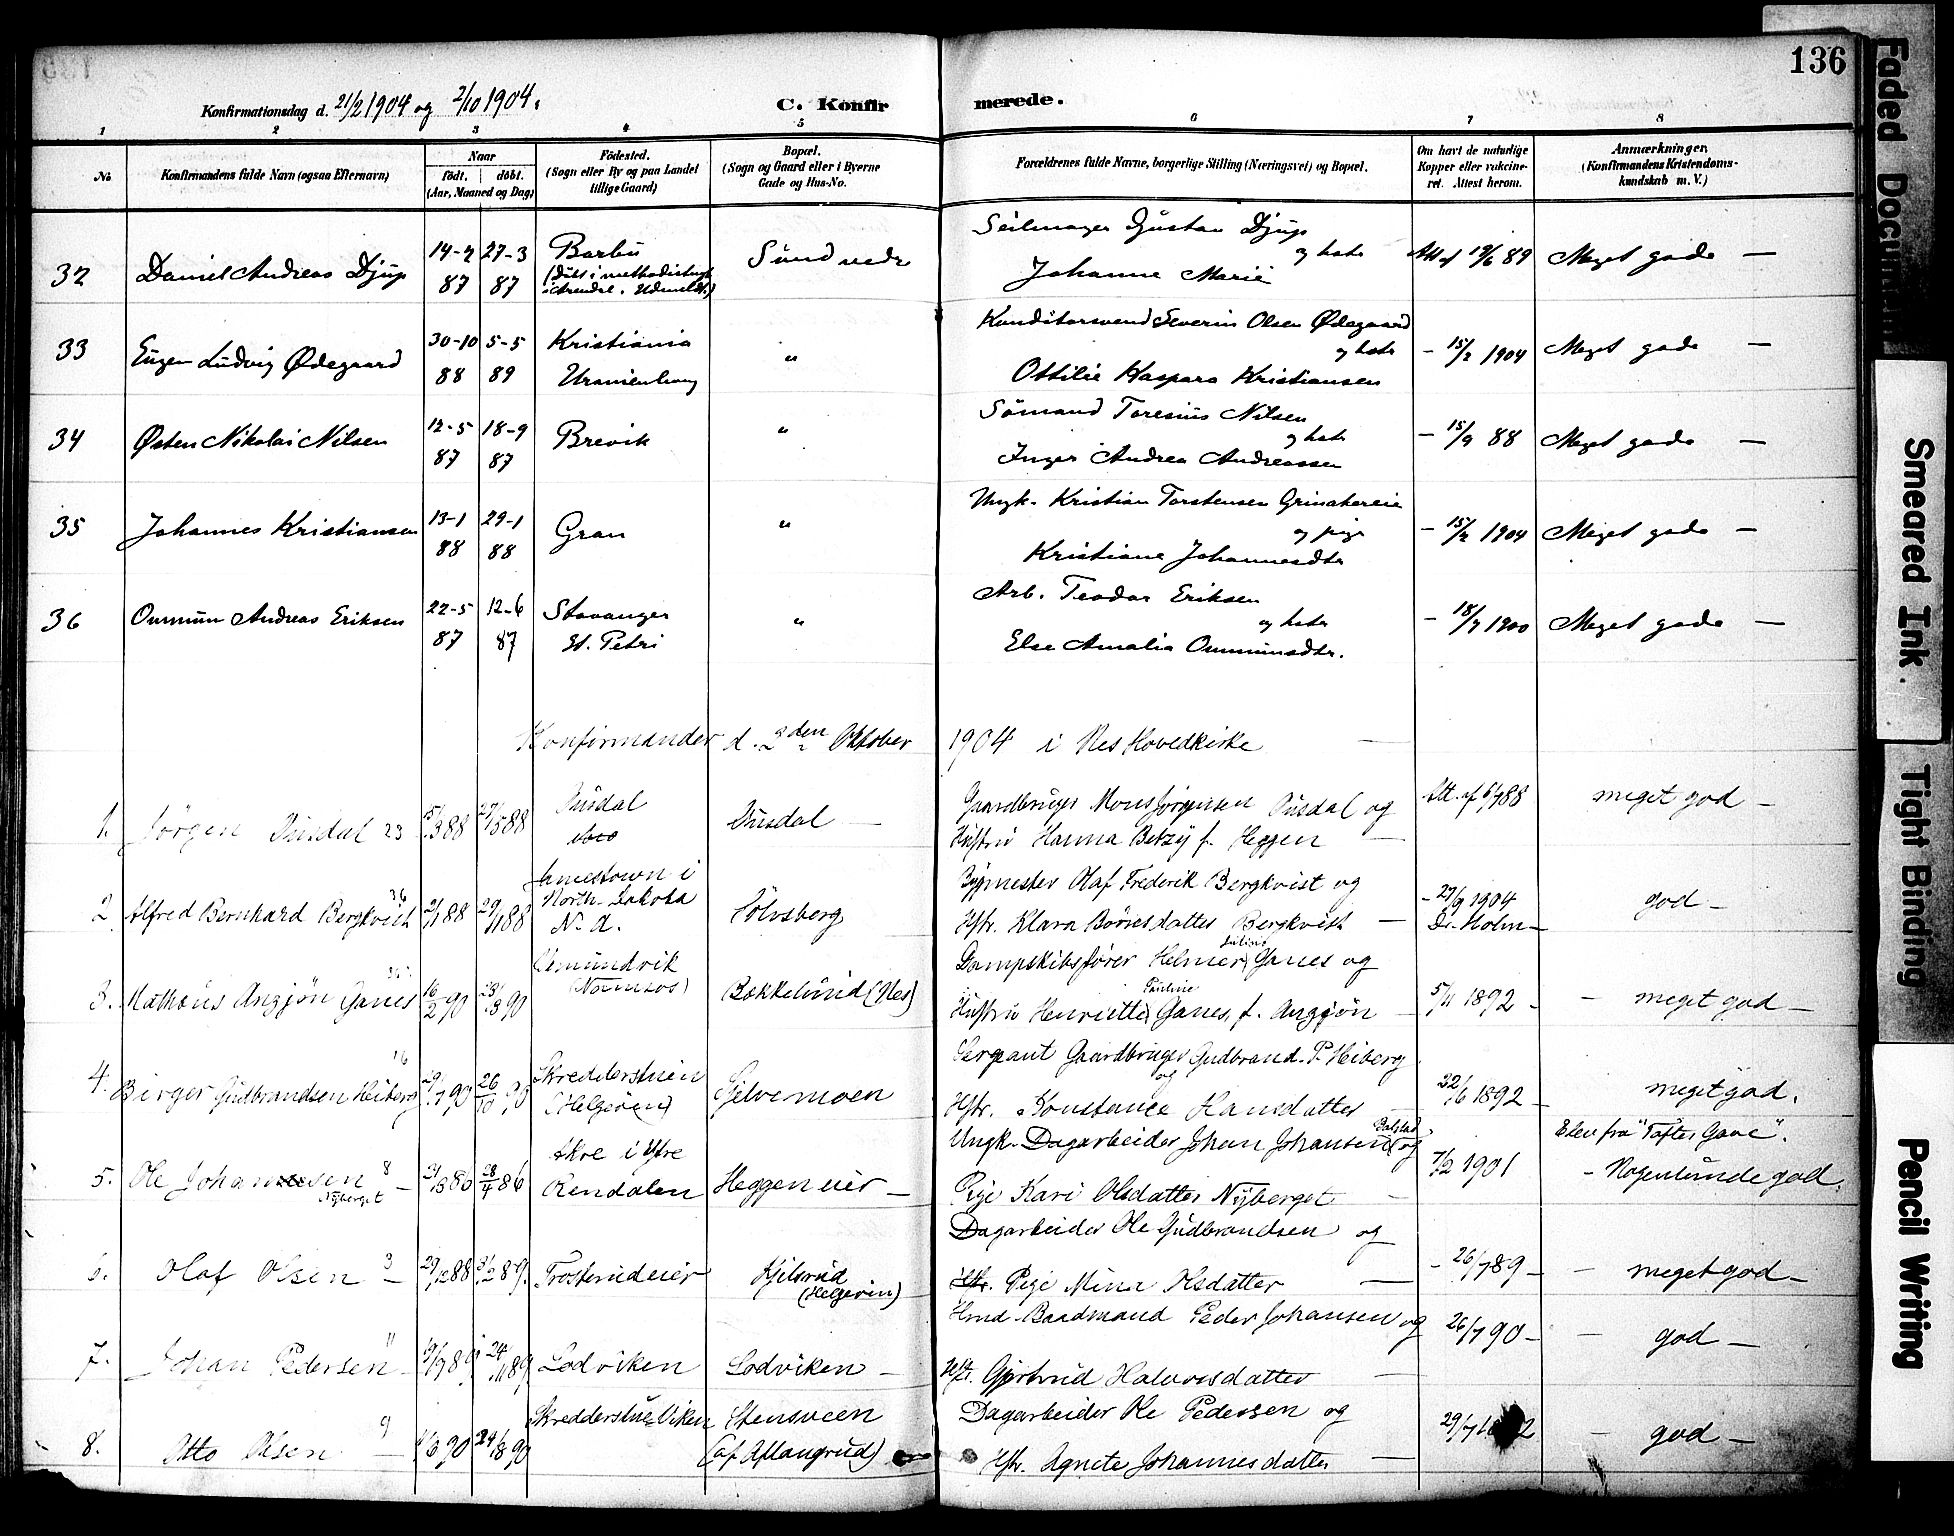 136
Konfirmationsdag d. 21/2 1904 og 2/10 1904.
C. Konfirmerede.
1 2 3 4 5 6 7 8
No
Konfirmandens fulde Navn (ogsaa Efternavn)
Naar
født. døbt.
(Aar, Maaned og Dag)
Fødested.
(Sogn eller By og paa Landet
tillige Gaard)
Bopæl.
(Sogn og Gaard eller i Byerne
Gade og Hus-No.
Forældrenes fulde Navne, borgerlige Stilling (Næringsvei) og Bopæl.
Om havt de naturlige
Kopper eller vakcine-
ret. Attest herom.
Anmærkninger
(Konfirmandens Kristendoms-
kundskab m. V.)
32 Daniel Andreas Djup 14-2 87 27-3 87 Barbu
(Døbt i methodistkirk
i Arendal. Udmeldt.)
Sundnedr
Seilmager Gustav Djup
og hstr
Johanne Marie
Att af 19/6 89 Meget gode —
33 Eugen Ludvig Ødegaard 30-10 88 5-5 89 Kristiania
Uranienborg
"
Konditorsvend Severin Olsen Ødegaard
og hstr
Ottilie Kaspara Kristiansen
— 15/2 1904 Meget gode —
34 Østen Nikolai Nilsen 12-5 87 18-9 87 Brevik
"
Sömand Toresius Nilsen
og hstr
Inger Andrea Andreassen
— 15/9 88 Meget gode —
35 Johannes Kristiansen 13-1 88 29-1 88 Gran
"
Ungk. Kristian Torstensen Grinakereie
og pige
Kristiane Johannesdtr
— 15/2 1904 Meget gode —
36 Ommun Andreas Eriksen 22-5 87 12-6 87 Stavanger
St. Petri
"
Arb. Teodor Eriksen
og hstr
Else Amalia Ommunsdtr.
— 18/7 1900 Meget gode —
Konfirmander d. 2den Oktober 1904 i Nes Hovedkirke
1. Jörgen Dusdal 23 15/3 88 27/5 88 Dusdal
Dusdal
Gaardbruger Mons Jörgensen Dusdal og
Hustru Hanna Betzy f. Heggen
Att. af 6/7 88 meget god —
2 Alfred Bernhard Bergkvist 36 2/1 88 29/1 88 Jamestown i
North-Dakota
N. A.
Sölvsberg
Bygmester Olaf Frederik Bergkvist og
Hstr. Klara Börresdatter Bergkvist —
- 27/9 1904
Dr. Holm —
god —
3. Mathæus Angjön Ganes 16/2 90 23/3 90
(Namsos)
Bakkelund (Nes)
Dampskibsfører Helmer Julius Ganes og
Hustru Henriette Pauline Ganes, f. Angjön
5/11 1892 - — meget god —
4. Birger Gudbrandsen Heiberg 16 29/7 90 26/10 90 Skredderstuen
(Helgöen)
Gjelvemoen
Sergeant Gaardbruger Gudbrand. P. Heiberg
og
Hstr. Konstance Hansdatter
22/6 1892 — meget god.
5. Ole Johansen 8
Nyberget
86 28/4 86 Akre i Ytre
Rendalen
Heggeneier —
Ungk. Dagarbeider Johan Johansen og
Pige Kari Olsdatter Nyberget
7/2 1901
Elev fra "Toftes Gave".
- Nogenlunde god.
6. Olaf Olsen 3 29/12 88 3/2 89. Frosterudeier
Kjelsrud
(Helgöen)
Dagarbeider Ole Gudbrandsen og
Hstr. Pige Mina Olsdatter —
- 26/7 89 — — meget god —
7. Johan Pedersen 11 24/11 89 Lodviken Lodviken —
Hmd Baadmand Peder Johansen og
Hst. Gjertrud Halvorsdatter
26/7 90 — — god —
8. Otto Olsen 9 90 24/8 90 Skredderstue Viken
Stensveen
(af Aflangrud)
Dagarbeider Ole Pedersen og
Hstr. Agnete Johannesdatter
29/7 — god —
Faded Document
Smeared Ink.
Tight Binding
Pencil Writing